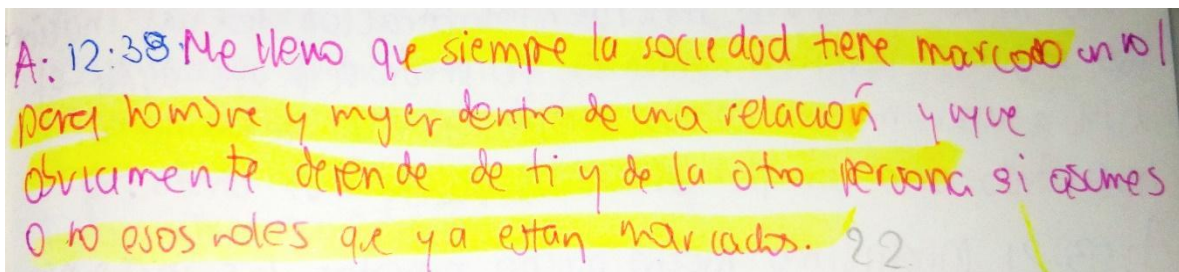 A: 12:38 Me llevo que siempre la sociedad tiene marcado un rol
para hombre y mujer dentro de una relación y que
obviamente depende de ti y de la otra persona si asumes
o no esos roles que ya estan marcados. 22